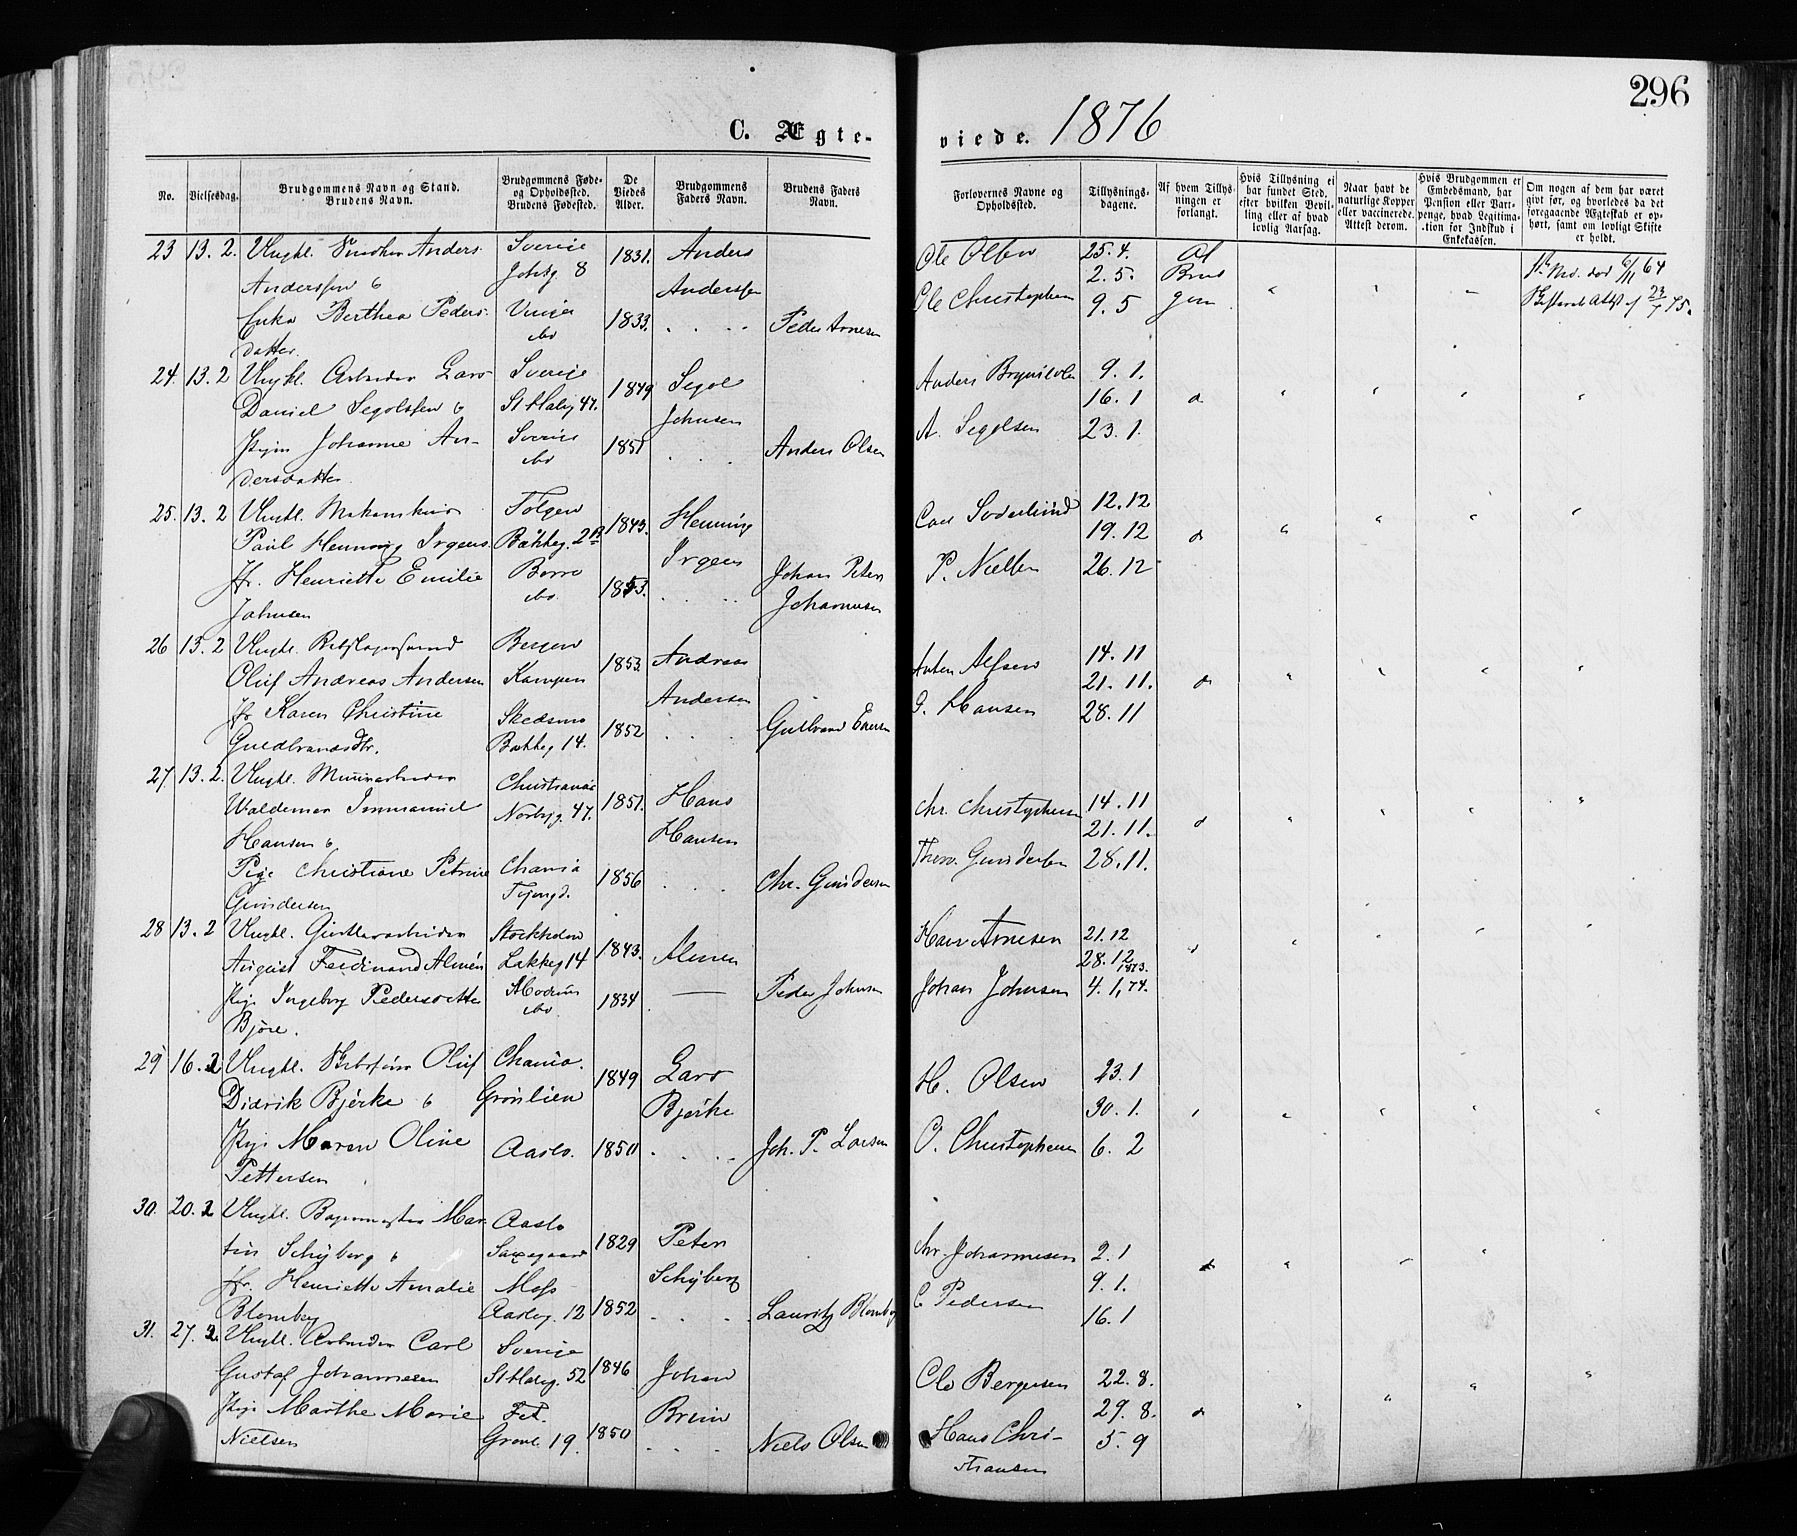 296
C. Ægte-
viede. 1876
No.
Vielsesdag.
Brudgommens Navn og Stand.
Brudens Navn.
Brudgommens Føde-
og Opholdssted.
Brudens Fødested.
De
Viedes
Alder.
Brudgommens
Faders Navn.
Brudens Faders
Navn.
Forlovernes Navne og
Opholdssted.
Tillysnings-
dagene.
Af hvem Tillys-
ningen er
forlangt.
Hvis Tillysning ei
har fundet Sted,
efter hvilken Bevil-
ling eller af hvad
lovlig Aarsag.
Naar havt de
naturlige Kopper
eller vaccinerede.
Attest derom.
Hvis Brudgommen er
Embedsmand, har
Pension eller Vart-
penge, hvad Legitima-
tion for Indskud i
Enkekassen.
Om nogen af dem har været
givt før, og hvorledes da det
foregaaende Ægteskab er op-
hørt, samt om lovligt Skifte
er holdt.
23 13. 2. Ungkl. Anders Sverige 1831. Anders Ole Olsen 25. 4. Af
Anderssen 8 Anderssen 2. 5. Brud
Enke Berthea Peders- Vinger 1833. Peder Arnesen Ole Christophersen 9. 5 gom
datter. do
24. 13. 2 Ungkl. Arbeider Lars Sverige 1849 Segol Anders 9. 1.
Daniel Segolssen St Halvg 47. Johnsen 16. 1
Pigen Johanne An- Sverige 1851 Anders Olsen A. Segolsen 23. 1.
dersdatter. do
25. 13. 2 Ungkl. Tolgen 1843. Henning Carl Søderlund 12. 12
Paul Henning Irgens Bakkeg. 2 B Irgens 19. 12
Jfr. Henriette Emilie Borre 1853. Johan Peter P. Nielsen 26. 12
Johnsen do. Johannesen
26 13. 2 Ungkl. Rebslagersvend Bergen 1853. Andreas Anton Alfsen 14. 11
Oluf Andreas Andersen Kampen Andersen 21. 11.
Jfr Karen Christine Skedsmo 1852 Gulbrand G. Hansen 28. 11
Guldbrandsdtr. Bakkeg 14.
27. 13. 2. Ungkl. Murarbeider Christiania 1851. Hans Chr. Christophersen 14. 11
Waldemar Immanuel Norbyg. 47. Hansen 21. 11.
Hansen
Pige Christiane Petrine Chania 1856 Chr. Gundersen Gundersen 28. 11.
Gundersen
28 13. 2 Ungkl. Stockholm 1843. Almen Hans Arnesen 21. 12
August Ferdinand Almén Lakkeg 14 28. 12 1873.
Pige Ingeborg Pedersdatter Modum 1834 — Peder Johnsen Johan Johnsen 4. 1, 74.
Bjøre. do.
29 16. 2 Ungkl. Oluf Chania. 1849 Lars H. Olsen 23. 1
Didrik Bjerke Grønlien Bjerke 30. 1.
Pige Maren Oline Aaslo. 1850 Joh. P. Larsen O. Christophersen 6. 2
Pettersen
30. 20. 2 Ungkl. Mar- Aaslo 1829 Peter Chr. Johannesen 2. 1
tin Schyberg Saxegaard Schyberg 9. 1.
Jfr. Henriette Amalie Moss 1852 Lauritz Blomberg C Pedersen 16. 1
Blomberg Aaslog. 12
31. 27. 2. Ungkl. Arbeider Carl Sverige 1846 Johan Ole Bergersen 22. 8.
Gustaf Johannesen St Halvg. 52 29. 8.
Pige Marthe Marie Fet. 1850 Niels Olsen Hans Chri- 5. 9
Nielsen Grønl. 19. stiansen